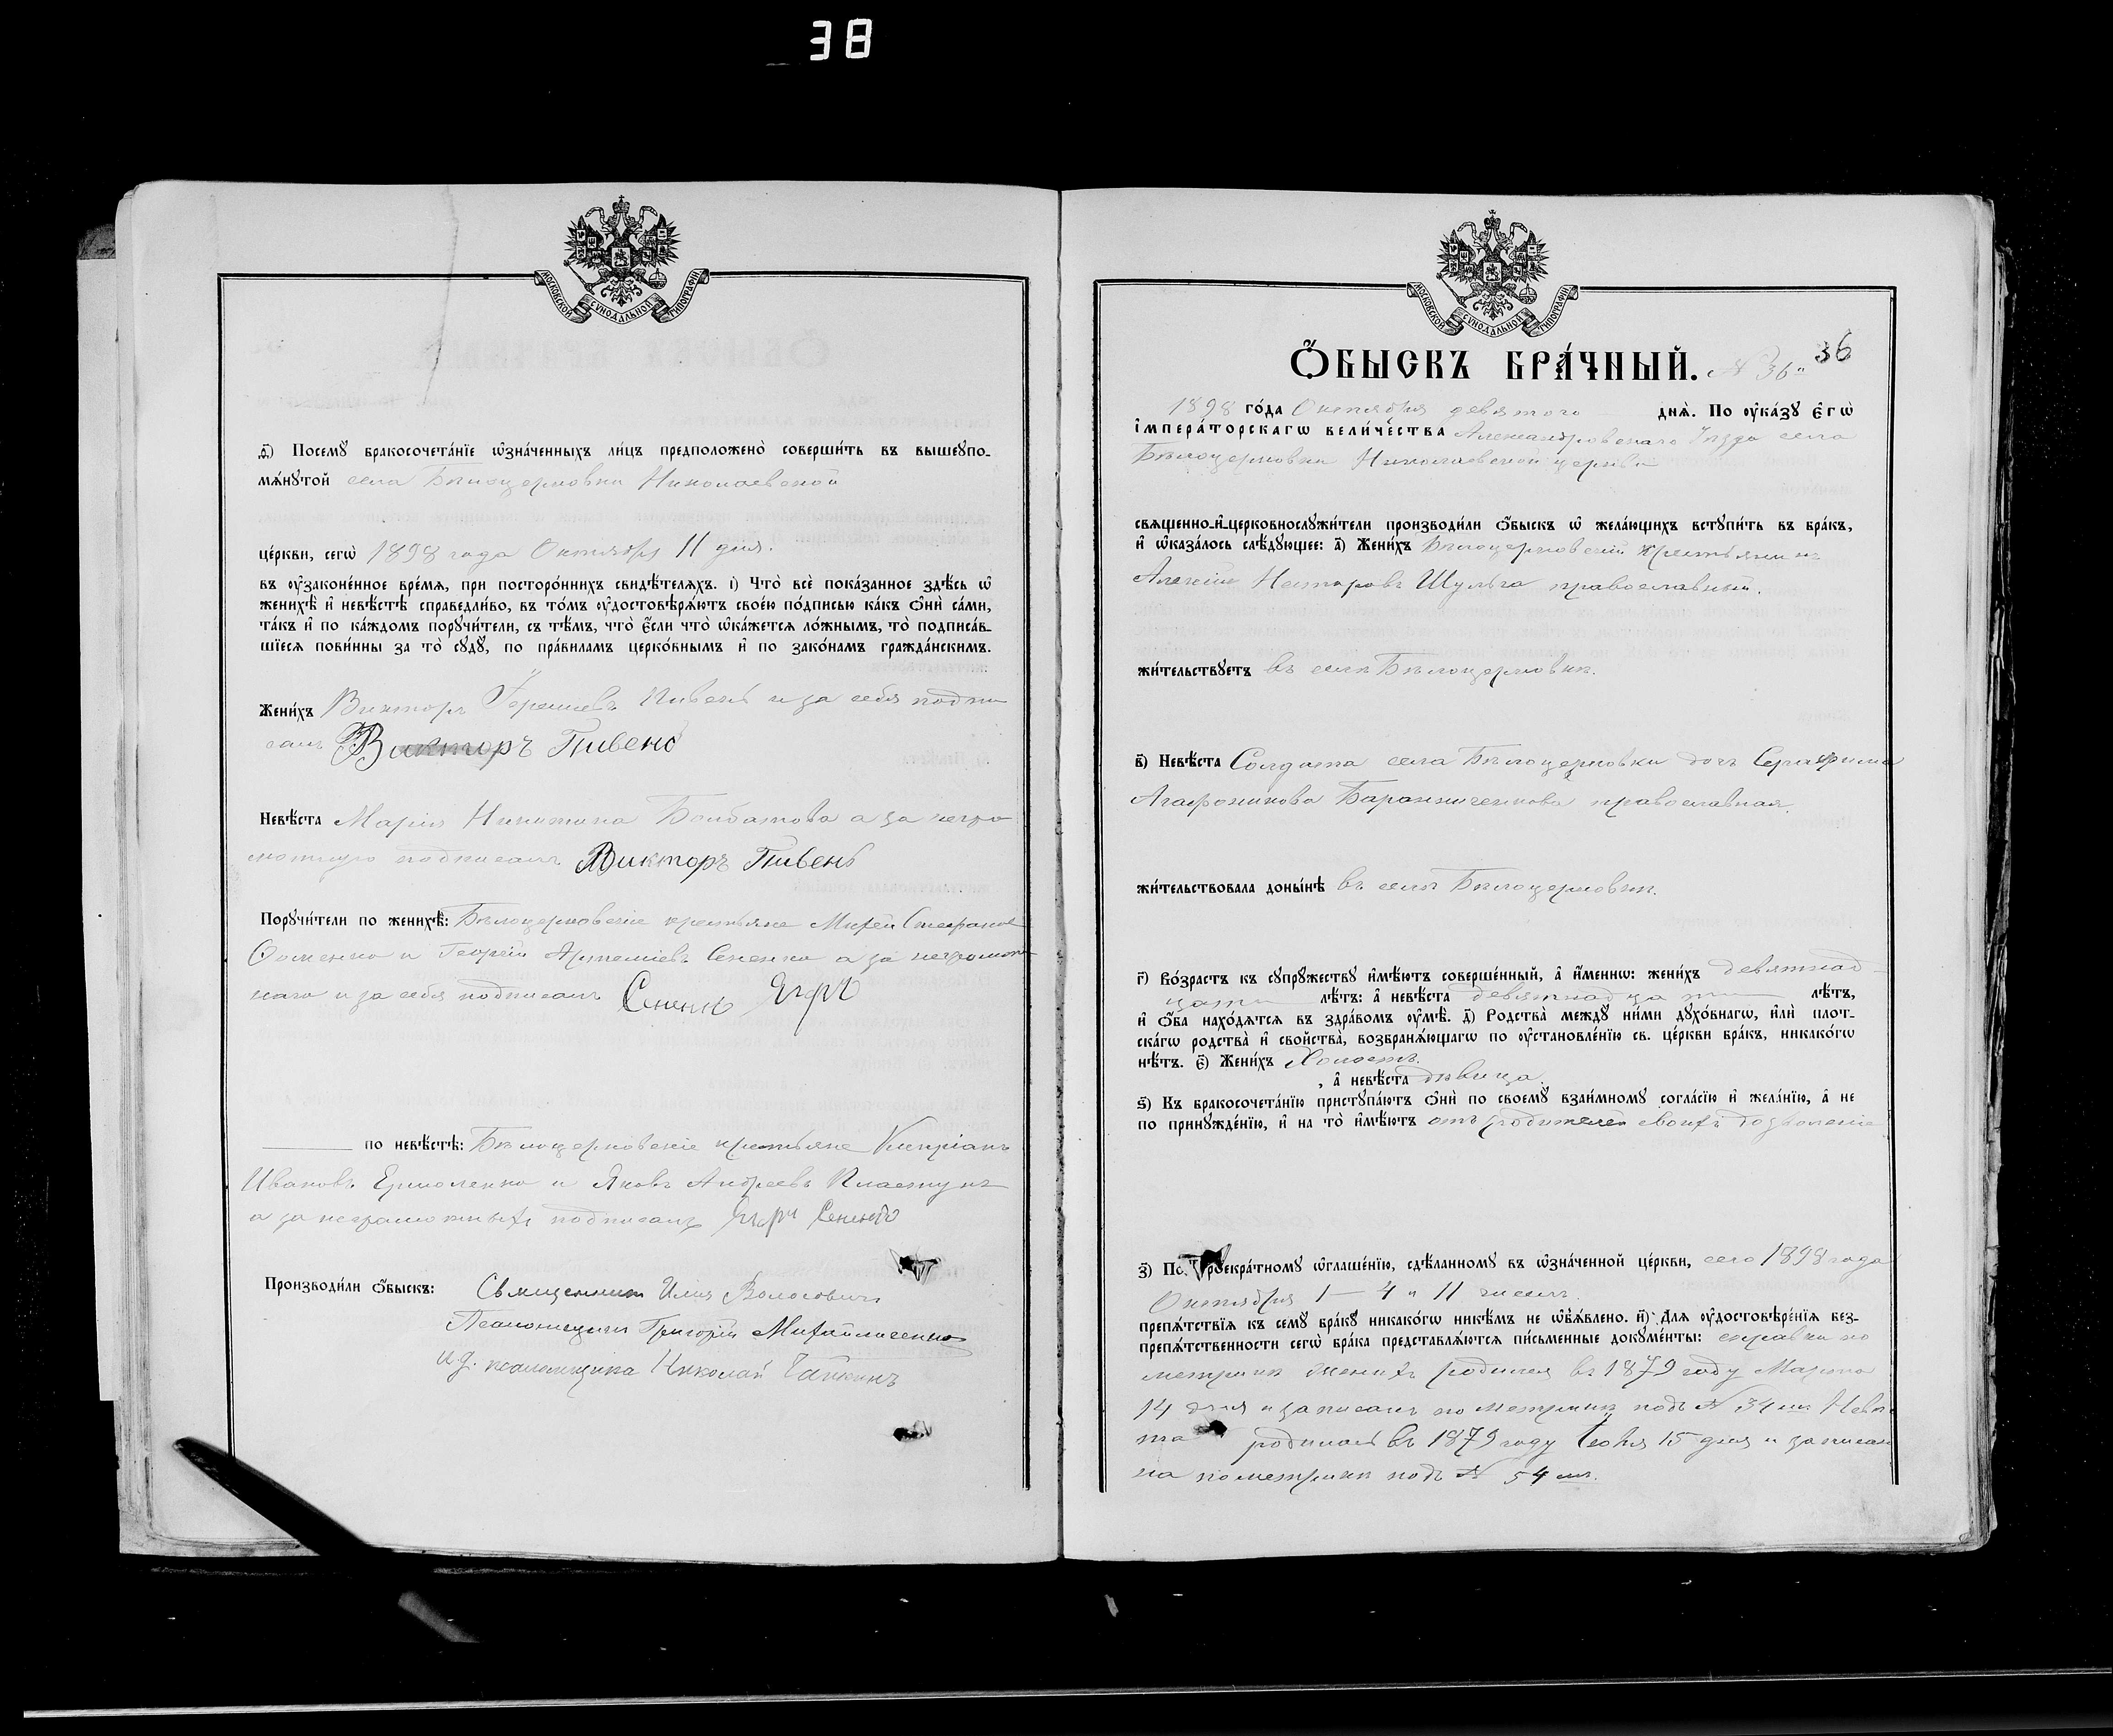 38
МОСКОВСКОЙ СУНОДАЛЬНОЙ ТИПОГРАФІИ
Посемꙋ бракосочета́нїе ѡ҆зна́ченныхъ ли́цъ предположено̀ соверши́ть въ вышеꙋпо-
мѧ́нꙋтой села Бѣлоцерковки Николаевской
це́ркви, сегѡ̀ 1898 года Октября 11 дня.
въ ᲂу҆законе́нное вре́мѧ, при посторо́ннихъ свидѣ́телѧхъ. і) Что̀ всѐ пока́занное здѣ́сь ѡ҆
женихѣ̀ и҆ невѣ́стѣ справедли́во, въ то́мъ ᲂу҆достовѣрѧ́ютъ свое́ю по́дписью ка́къ ѻ҆нѝ са́ми,
та́къ и҆ по ка́ждомъ порꙋчи́тели, съ тѣ́мъ, что̀ є҆́сли что̀ ѡ҆ка́жетсѧ ло́жнымъ, то̀ подписа́в-
шїесѧ пови́нны за то̀ сꙋдꙋ̀, по пра́виламъ церко́внымъ и҆ по зако́намъ гражда́нскимъ.
Жени́хъ Викторъ Пивень и за себя подпи
салъ Викторъ Пивень
Невѣ́ста Марія Никитина а за негра
мотную подписалъ Викторъ Пивень
Порꙋчи́тели по женихѣ̀: Бѣлоцерковскіе крестьяне Стефановъ
и Георгій Артеміевъ Сененко а за неграмот
наго и за себя подписалъ
по невѣ́стѣ: Бѣлоцерковскіе крестьяне Кипріанъ
Ивановъ Ермоленко и Яковъ Андреевъ Пластунъ
а за неграмотныхъ подписалъ Сененко
Производи́ли ѻ҆́быскъ: Священникъ Илія Волосовичъ
Псаломщикъ Григорій Михайличенко
и.д. псаломщика Николай
МОСКОВСКОЙ СУНОДАЛЬНОЙ ТИПОГРАФІИ
Ѻ҆́БЫСКЪ БРА́ЧНЫЙ. № 36й 36
1898 го́да Октября девятого днѧ̀. По ᲂу҆ка́зꙋ є҆гѡ̀
і҆мпера́торскагѡ вели́чества Александровскаго Уѣзда села
Бѣлоцерковки Николаевской церкви
свѧщенно-и҆-церковнослꙋжи́тели производи́ли ѻ҆́быскъ ѡ҆ жела́ющихъ встꙋпи́ть въ бра́къ,
и҆ ѡ҆каза́лось слѣ́дꙋющее: а҃) Жени́хъ Бѣлоцерковскій крестьянинъ
Алексій Несторовъ Шульга православный.
жи́тельствꙋетъ въ селѣ Бѣлоцерковкѣ.
в҃) Невѣ́ста Солдата села Бѣлоцерковки дочь Серафима
Агафоникова Баранниченкова православная.
жи́тельствовала доны́нѣ въ селѣ Бѣлоцерковкѣ.
г҃) Во́зрастъ къ сꙋпрꙋ́жествꙋ и҆мѣ́ютъ соверше́нный, а҆ и҆́меннѡ: жени́хъ девятнад-
цати лѣ́тъ: а҆ невѣ́ста девятнадцати лѣ́тъ,
и҆ ѻ҆́ба нахо́дѧтсѧ въ здра́вомъ ᲂу҆мѣ̀. д҃) Родства̀ междꙋ̀ ни́ми дꙋхо́внагѡ, и҆лѝ плот-
ска́гѡ родства̀ и҆ сво́йства̀, возбранѧ́ющагѡ по ᲂу҆становле́нїю св. це́ркви бра́къ, никако́гѡ
нѣ́тъ. є҃) Жени́хъ Холостъ.
, а҆ невѣ́ста дѣвица.
ѕ҃) Къ бракосочета́нїю пристꙋпа́ютъ ѻ҆нѝ по своемꙋ̀ взаи́мномꙋ согла́сїю и҆ жела́нїю, а҆ не
по принꙋжде́нїю, и҆ на то̀ и҆мѣ́ютъ отъ родителей своихъ дозволеніе
з҃) По троекра́тномꙋ ѡ҆глаше́нїю, сдѣ́ланномꙋ въ ѡ҆зна́ченной це́ркви, сего 1898 года
Октября 1 — 4 и 11 чиселъ
препѧ́тствїѧ къ семꙋ̀ бра́кꙋ никако́гѡ никѣ́мъ не ѡ҆б̾ѧ́влено. и҃) Для ᲂу҆достовѣре́нїѧ без-
препѧ́тственности сегѡ̀ бра́ка представлѧ́ютсѧ пи́сьменные докꙋме́нты: справки по
метрикѣ женихъ родился въ 1879 году Марта
14 дня и записанъ по метрикѣ подъ № 34 мъ Невѣ
ста родилась въ 1879 году 15 дня и записан
на по метрикѣ подъ № 54 мъ.